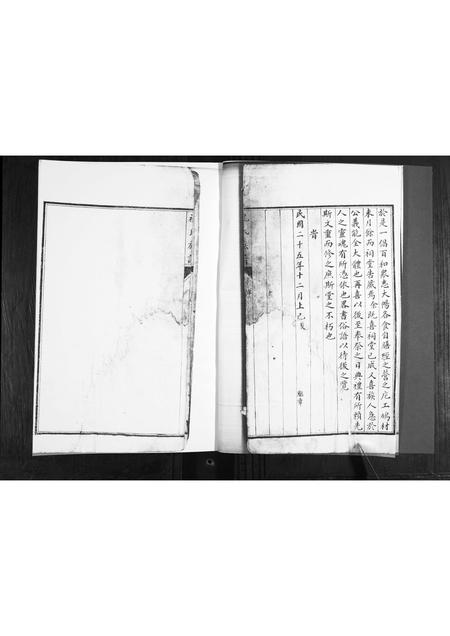 於是一倡百和眾志大陽各食自膳經之營之庀工鳩材
未月餘而祠堂告成焉余既喜祠堂已成又喜族人急於
公義能全大體也再喜以後至奉祭之日典禮有所賴先
人之靈魂有所憑依也畧書俗語以待後之覽
斯文重而修之庶斯堂之不朽也
 旹
民國二十五年十二月上巳